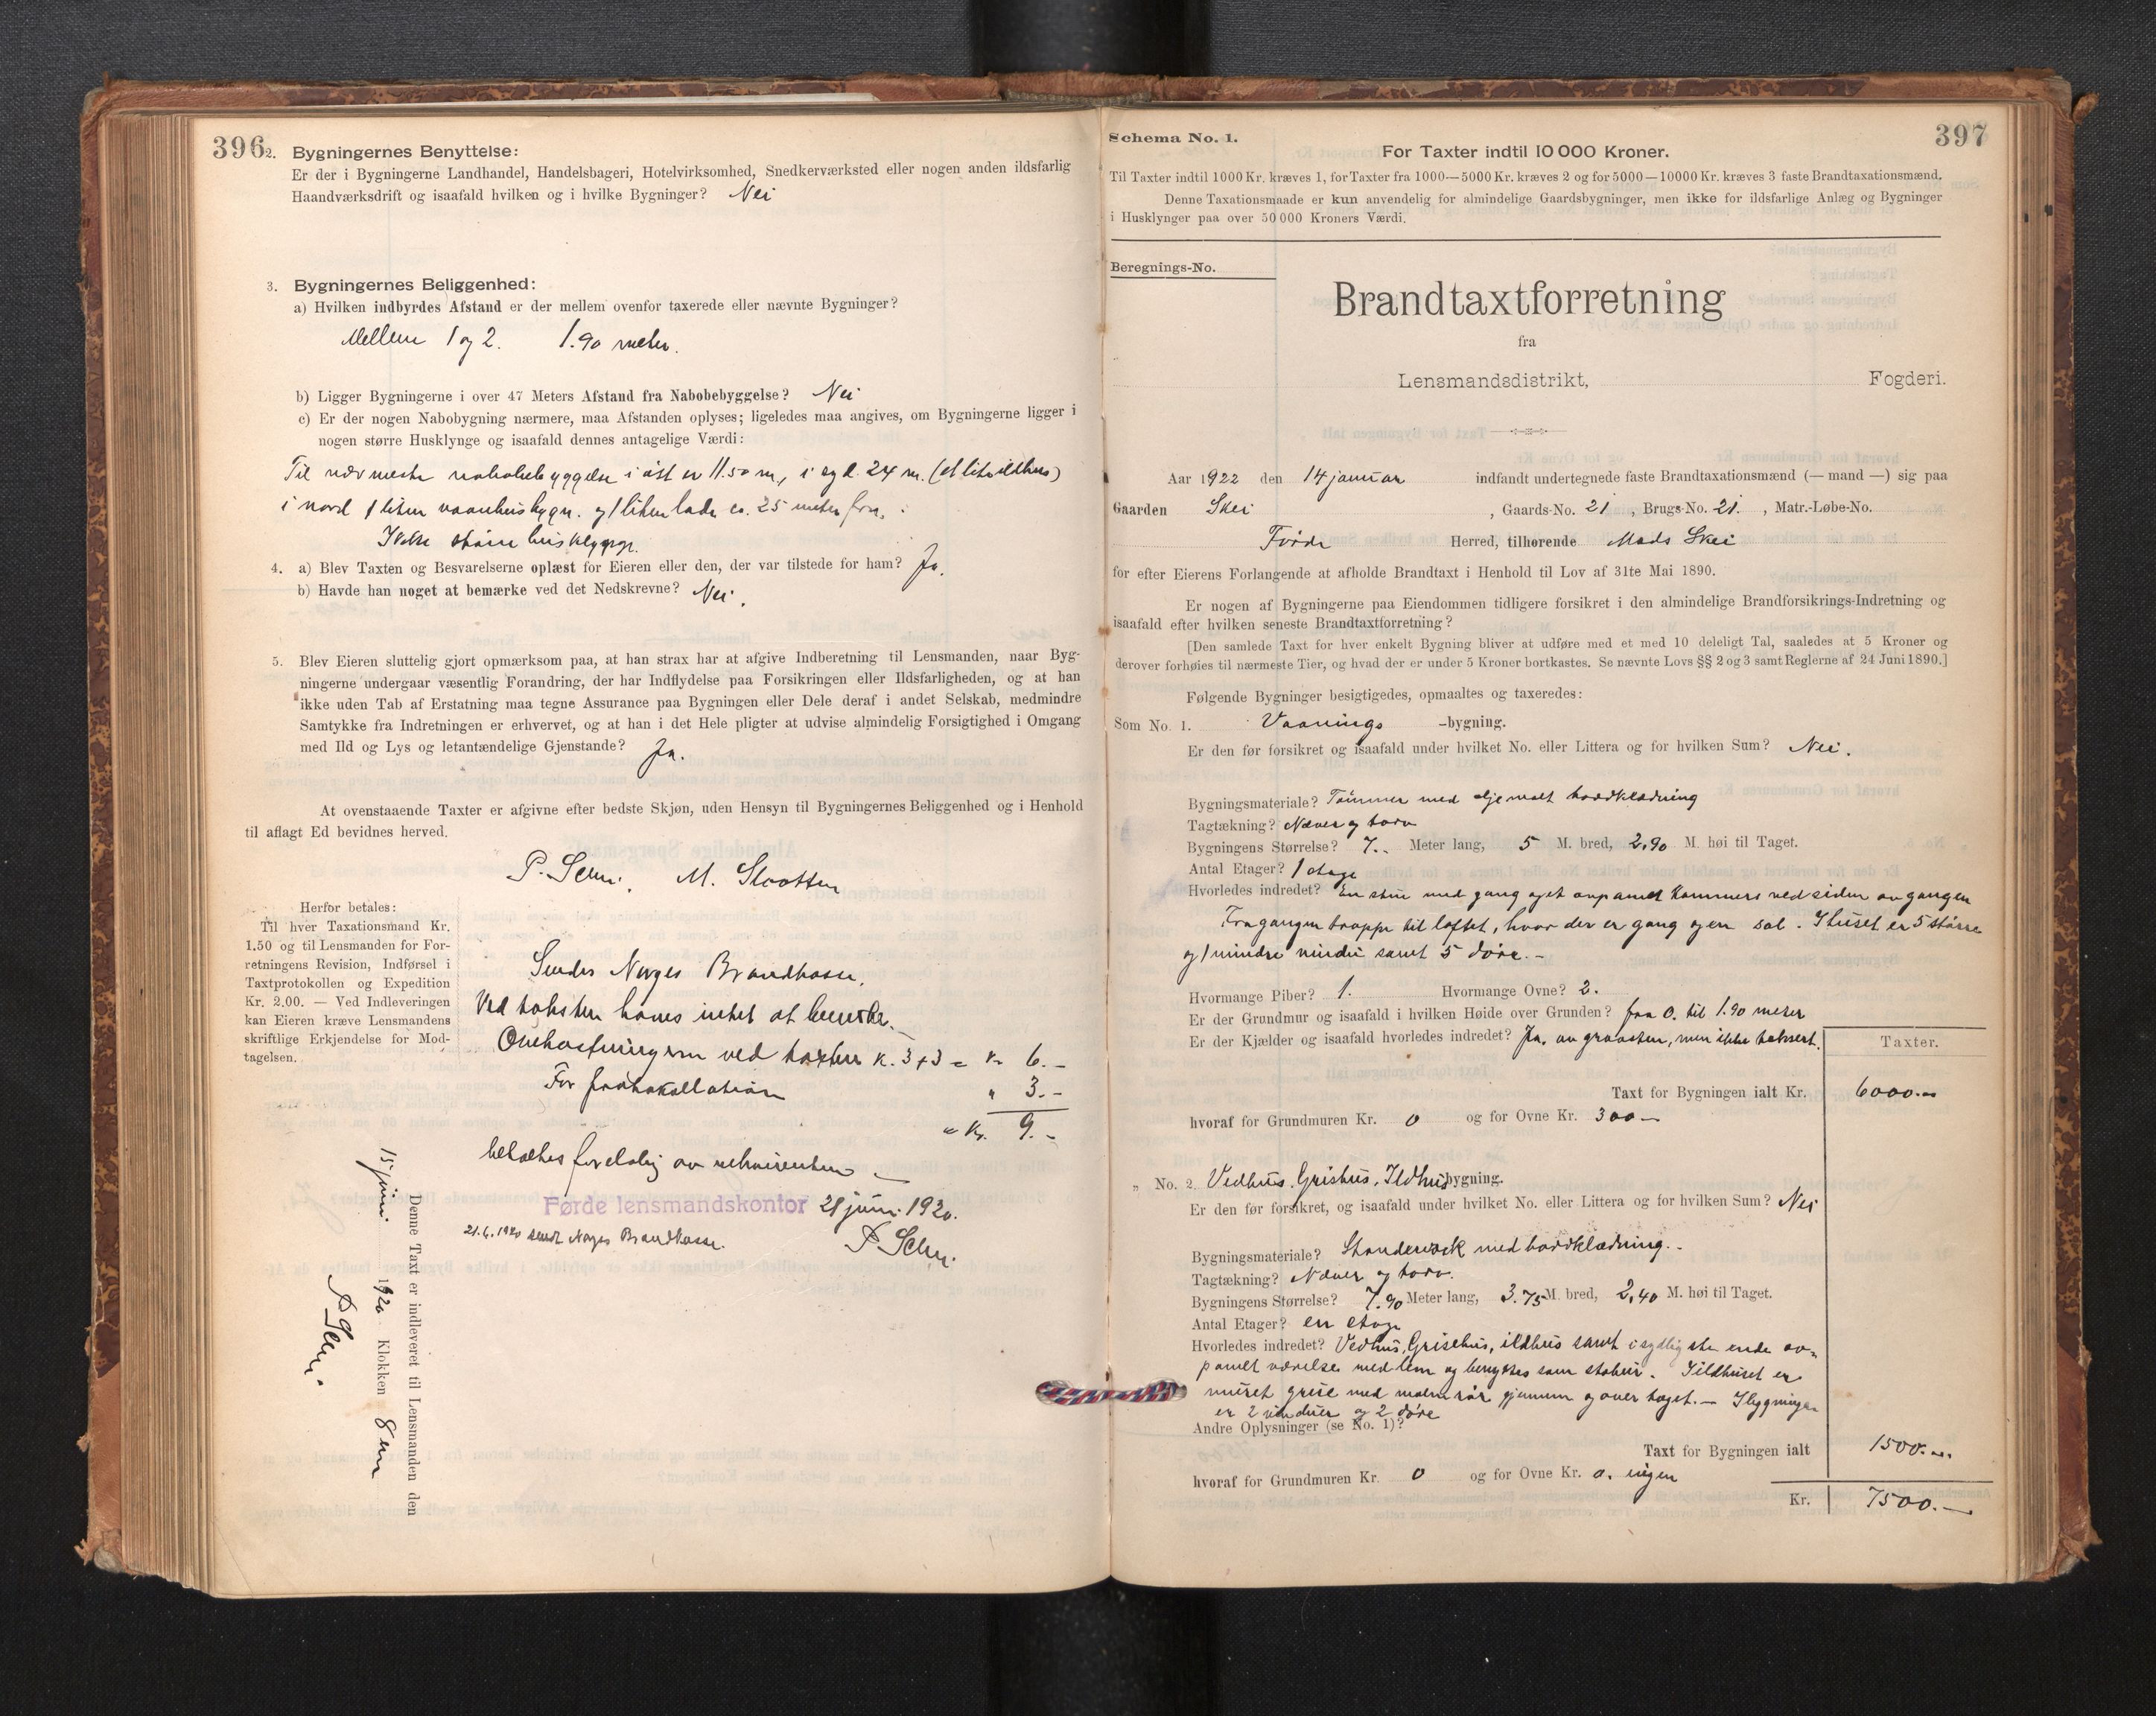 396
2. Bygningernes Benyttelse:
Er der i Bygningerne Landhandel, Handelsbageri, Hotelvirksomhed, Snedkerværksted eller nogen anden ildsfarlig
Haandværksdrift og isaafald hvilken og i hvilke Bygninger? Nei
3. Bygningernes Beliggenhed:
a) Hvilken indbyrdes Afstand er der mellem ovenfor taxerede eller nævnte Bygninger?
Mellem 1 og 2. 1.90 meter.
b) Ligger Bygningerne i over 47 Meters Afstand fra Nabobebyggelse? Nei
c) Er der nogen Nabobygning nærmere, maa Afstanden oplyses; ligeledes maa angives, om Bygningerne ligger i
nogen større Husklynge og isaafald dennes antagelige Værdi:
Til nærmeste nabobebyggelse i øst er 11.50 m., i syd 24 m. (et lite ildhus)
i nord 1 liten vaanhusbygn. og 1 liten lade ca. 25 meter fra.
Ikke større husklynge.
4. a) Blev Taxten og Besvarelserne oplæst for Eieren eller den, der var tilstede for ham? Ja.
b) Havde han noget at bemærke ved det Nedskrevne? Nei.
5. Blev Eieren sluttelig gjort opmærksom paa, at han strax har at afgive Indberetning til Lensmanden, naar Byg-
ningerne undergaar væsentlig Forandring, der har Indflydelse paa Forsikringen eller Ildsfarligheden, og at han
ikke uden Tab af Erstatning maa tegne Assurance paa Bygningen eller Dele deraf i andet Selskab, medmindre
Samtykke fra Indretningen er erhvervet, og at han i det Hele pligter at udvise almindelig Forsigtighed i Omgang
med Ild og Lys og letantændelige Gjenstande? Ja.
At ovenstaaende Taxter er afgivne efter bedste Skjøn, uden Hensyn til Bygningernes Beliggenhed og i Henhold
til aflagt Ed bevidnes herved.
P. M.
Herfor betales:
Til hver Taxationsmand Kr.
1.50 og til Lensmanden for For-
retningens Revision, Indførsel i
Taxtprotokollen og Expedition
Kr. 2.00. — Ved Indleveringen
kan Eieren kræve Lensmandens
skriftlige Erkjendelse for Mod-
tagelsen.
Sendes Norges Brandkasse.
Ved taksten haves intet at bemerke.
Omkostningerne ved taxten K. 3 + 3 = Kr 6.-
For protokollation " 3.-
= Kr. 9.-
betaltes foreløbig av rekvirenten
Førde lensmandskontor 21 juni 1920.
21.6.1920 sendt Norges Brandkasse.
Denne Taxt er indleveret til Lensmanden den
15 juni 1920 Klokken 8 em
Schema No. 1.
397
For Taxter indtil 10 000 Kroner.
Til Taxter indtil 1000 Kr. kræves 1, for Taxter fra 1000—5000 Kr. kræves 2 og for 5000—10000 Kr. kræves 3 faste Brandtaxationsmænd.
Denne Taxationsmaade er kun anvendelig for almindelige Gaardsbygninger, men ikke for ildsfarlige Anlæg og Bygninger
i Husklynger paa over 50 000 Kroners Værdi.
Beregnings-No.
Brandtaxtforretning
fra
Lensmandsdistrikt, Fogderi.
Aar 1922 den 14 januar indfandt undertegnede faste Brandtaxationsmænd (— mand —) sig paa
Gaarden Skei, Gaards-No. 21, Brugs-No. 21., Matr.-Løbe-No.
Førde Herred, tilhørende Mads Skei
for efter Eierens Forlangende at afholde Brandtaxt i Henhold til Lov af 31te Mai 1890.
Er nogen af Bygningerne paa Eiendommen tidligere forsikret i den almindelige Brandforsikrings-Indretning og
isaafald efter hvilken seneste Brandtaxtforretning?
[Den samlede Taxt for hver enkelt Bygning bliver at udføre med et med 10 deleligt Tal, saaledes at 5 Kroner og
derover forhøies til nærmeste Tier, og hvad der er under 5 Kroner bortkastes. Se nævnte Lovs §§ 2 og 3 samt Reglerne af 24 Juni 1890.]
Følgende Bygninger besigtigedes, opmaaltes og taxeredes:
Som No. 1. Vaanings -bygning.
Er den før forsikret og isaafald under hvilket No. eller Littera og for hvilken Sum? Nei.
Bygningsmateriale? Tømmer med oljemalt bordklædning
Tagtækning? Næver og torv
Bygningens Størrelse? 7.- Meter lang, 5 M. bred, 2,90 M. høi til Taget.
Antal Etager? 1 etage
Hvorledes indredet? En stue med gang og et avpanet kammers ved siden av gangen
Fra gangen trappe til loftet, hvor der er gang og en sal. I huset er 5 større
og 1 mindre vindu samt 5 døre.-
Hvormange Piber? 1. Hvormange Ovne? 2.
Er der Grundmur og isaafald i hvilken Høide over Grunden? fra 0. til 1.90 meter
Er der Kjælder og isaafald hvorledes indredet? Ja, av graasten, men ikke taksert.
Taxter.
Taxt for Bygningen ialt Kr. 6000.-
hvoraf for Grundmuren Kr. 0 og for Ovne Kr. 300 -
" No. 2. Vedhus, Grishus, Ildhus bygning.
Er den før forsikret, og isaafald under hvilket No. eller Littera og for hvilken Sum? Nei
Bygningsmateriale? Standerværk med bordklædning.-
Tagtækning? Næver og torv.
Bygningens Størrelse? 7.90 Meter lang, 3.75 M. bred, 2,40 M. høi til Taget.
Antal Etager? en etage
Hvorledes indredet? Vedhus, Grisehus, ildhus samt i sydligste ende av-
panelt værelse med lem og benyttes som stabur. I ildhuset er
muret grue med malmrør gjennem og over taget.- I bygningen
er 2 vinduer og 2 døre
Andre Oplysninger (se No. 1)?
Taxt for Bygningen ialt 1500.-
hvoraf for Grundmuren Kr. 0 og for Ovne Kr. 0. ingen
Kr. 7500.-